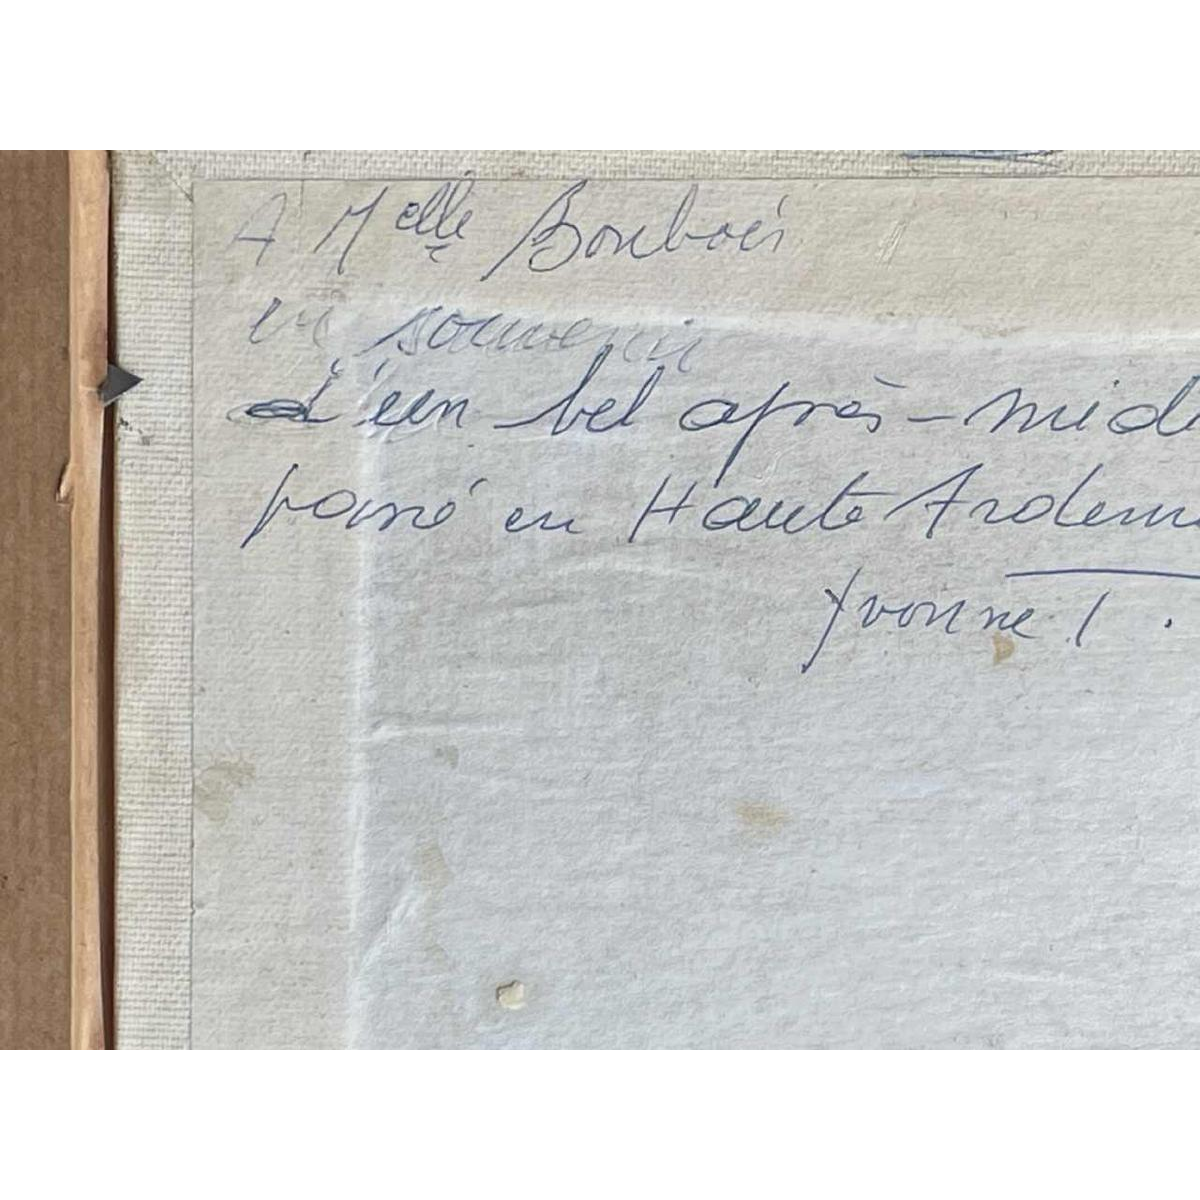 A Melle Bonbois
en souvenir
d'un bel après-midi
passé en Haute Ardenn
Yvonne